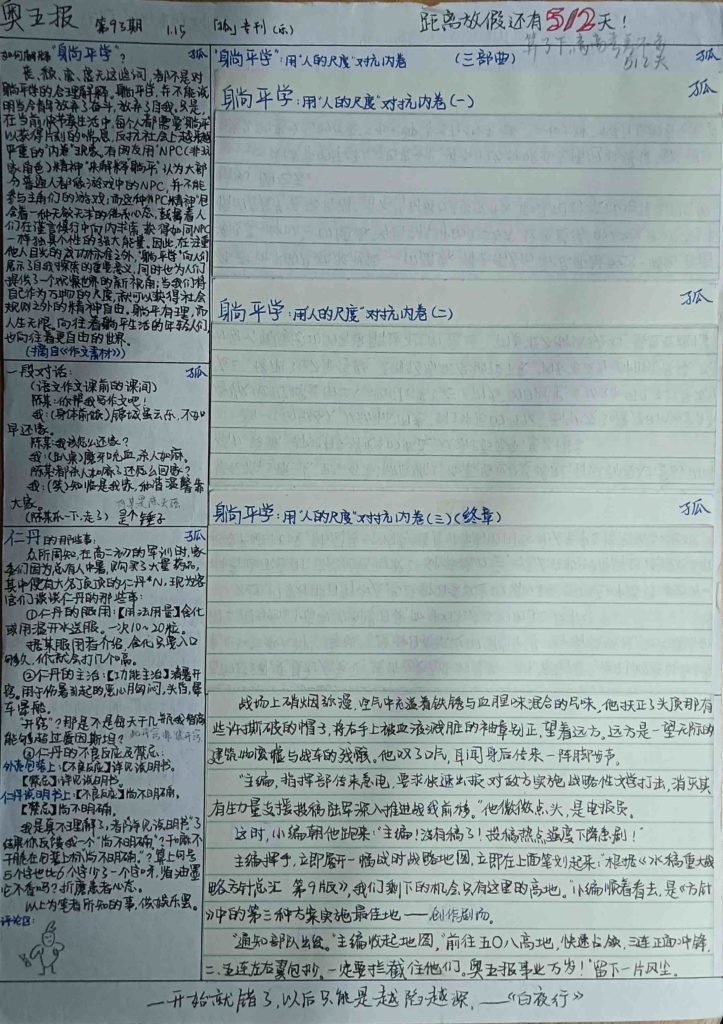 奥五报 第93期 1.15 「孤」专刊(乐) 距离放假还有512天!
算了下,离高考差不多
512天
如何解释"躺平学"? 孤
丧、颓、蛮、虚无这些词,都不是对
躺平学的合理解释。躺平学,并不能说
明当今青年放弃了奋斗,放弃了自我,只是,
在当前快节奏生活中,每个人都需要躺平
以获得片刻的喘息,反抗社会上越来越
严重的"内卷"现象。有网友用"NPC(非玩
家角色)精神"来解释躺平,认为大部
分普通人都像游戏中的NPC,并不能
参与主角们的游戏,而这种"NPC精神"包
含着一种无欲无求的佛系心态,鼓舞着人
们在谨言慎行中向内求索,获得如同NPC
一样独具个性的强大能量。因此,在注重
他人目光的成功标准之外,"躺平学"向人们
展示了自我探索的重要意义,同时也为人们
提供了个观察世界的新视角:当我们将
自己作为万物的尺度,就可以获得社会
规则之外的精神自由。躺平有理,而
人生无限,向往着躺平生活的年轻人们,
也向往着更自由的世界。
(摘自《作文素材》)
一段对话: 孤
(语文作文课前的课间)
陈某:你帮我写作文吧!
我:(身体前倾)锦城虽云乐,不如
早还家。
陈某:我该怎么还家?
我:(趴桌)磨牙吮血,杀人如麻。
陈某:都杀人如麻了还怎么回家?
我:(笑)知临是我家,和谐温馨靠
大家。
(陈某一下,走了)
是个锤子
仁丹的那些事: 孤
众所周知,在高二初的军训时,家
长们因为怕有人中暑,购买了大量药品,
其中便有大名顶顶的仁丹*N,现为客
官们谈谈仁丹的那些事:
①仁丹的服用:【用法用量】含化
或用温开水送服。一次10~20粒。
据某服用者介绍,含化只要入口
够久,你就会打几个嗝。
②仁丹的主治:【功能主治】清暑开
窍。用于伤暑引起的恶心胸闷,头昏,晕
车晕船。
"开窍"?那是不是每天于几瓶我智商
能够超过爱因斯坦?
③仁丹的不良反应及禁忌:
外壳包装上:【不良反应】详见说明书。
【禁忌】详见说明书。
仁丹说明书上:【不良反应】尚不明确。
【禁忌】尚不明确。
我是真不理解了,看前"详见说明书"了
结果你反馈我一个"尚不明确"?干嘛不
干脆在包装上标"尚不明确。"?算上句号
5个字也比6个字少了一个字呀,省油墨
它不香吗?折磨患者心态。
以上为笔者所知的事,供娱乐罢。
评论区:
"躺平学":用"人的尺度"对抗内卷 (三部曲) 孤
躺平学:用"人的尺度"对抗内卷(一) 孤
躺平学:用"人的尺度"对抗内卷(二) 孤
躺平学:用"人的尺度"对抗内卷(三)(终章) 孤
战场上硝烟弥漫,空气中充溢着铁锈与血腥味混合的气味,他扶正了头顶那有
些许撕破的帽子,将右手上被血液溅脏的袖章别正,望着远方,远方是一望无际的
建筑物废墟与战车的残骸。他叹了口气,耳闻身后传来一阵脚步声。
"主编,指挥部传来急电,要求快速出报对敌方实施战略性文学打击,消灭其
有生力量支援投稿陆军深入推进战线前移。"他微微点头,是电报员。
这时,小编朝他跑来:"主编!没有稿了!投稿热点温度下降急剧!"
主编挥手,立即展开一幅战时战略地图,立即在上面笔划起来:"根据《水稿重大战
略方针总汇 第9版》,我们剩下的机会只有这里的高地。"小编顺着看去,是《方针
》中的第三种方案实施最佳地——创作剧场。
"通知部队出发。"主编收起地图,"前往五〇八高地,快速占领,三连正面冲锋,
二、五连左右翼包抄,一定要拦截住他们。奥五报事业万岁!"留下一片风尘。
一开始就错了,以后只能是越陷越深。——《白夜行》